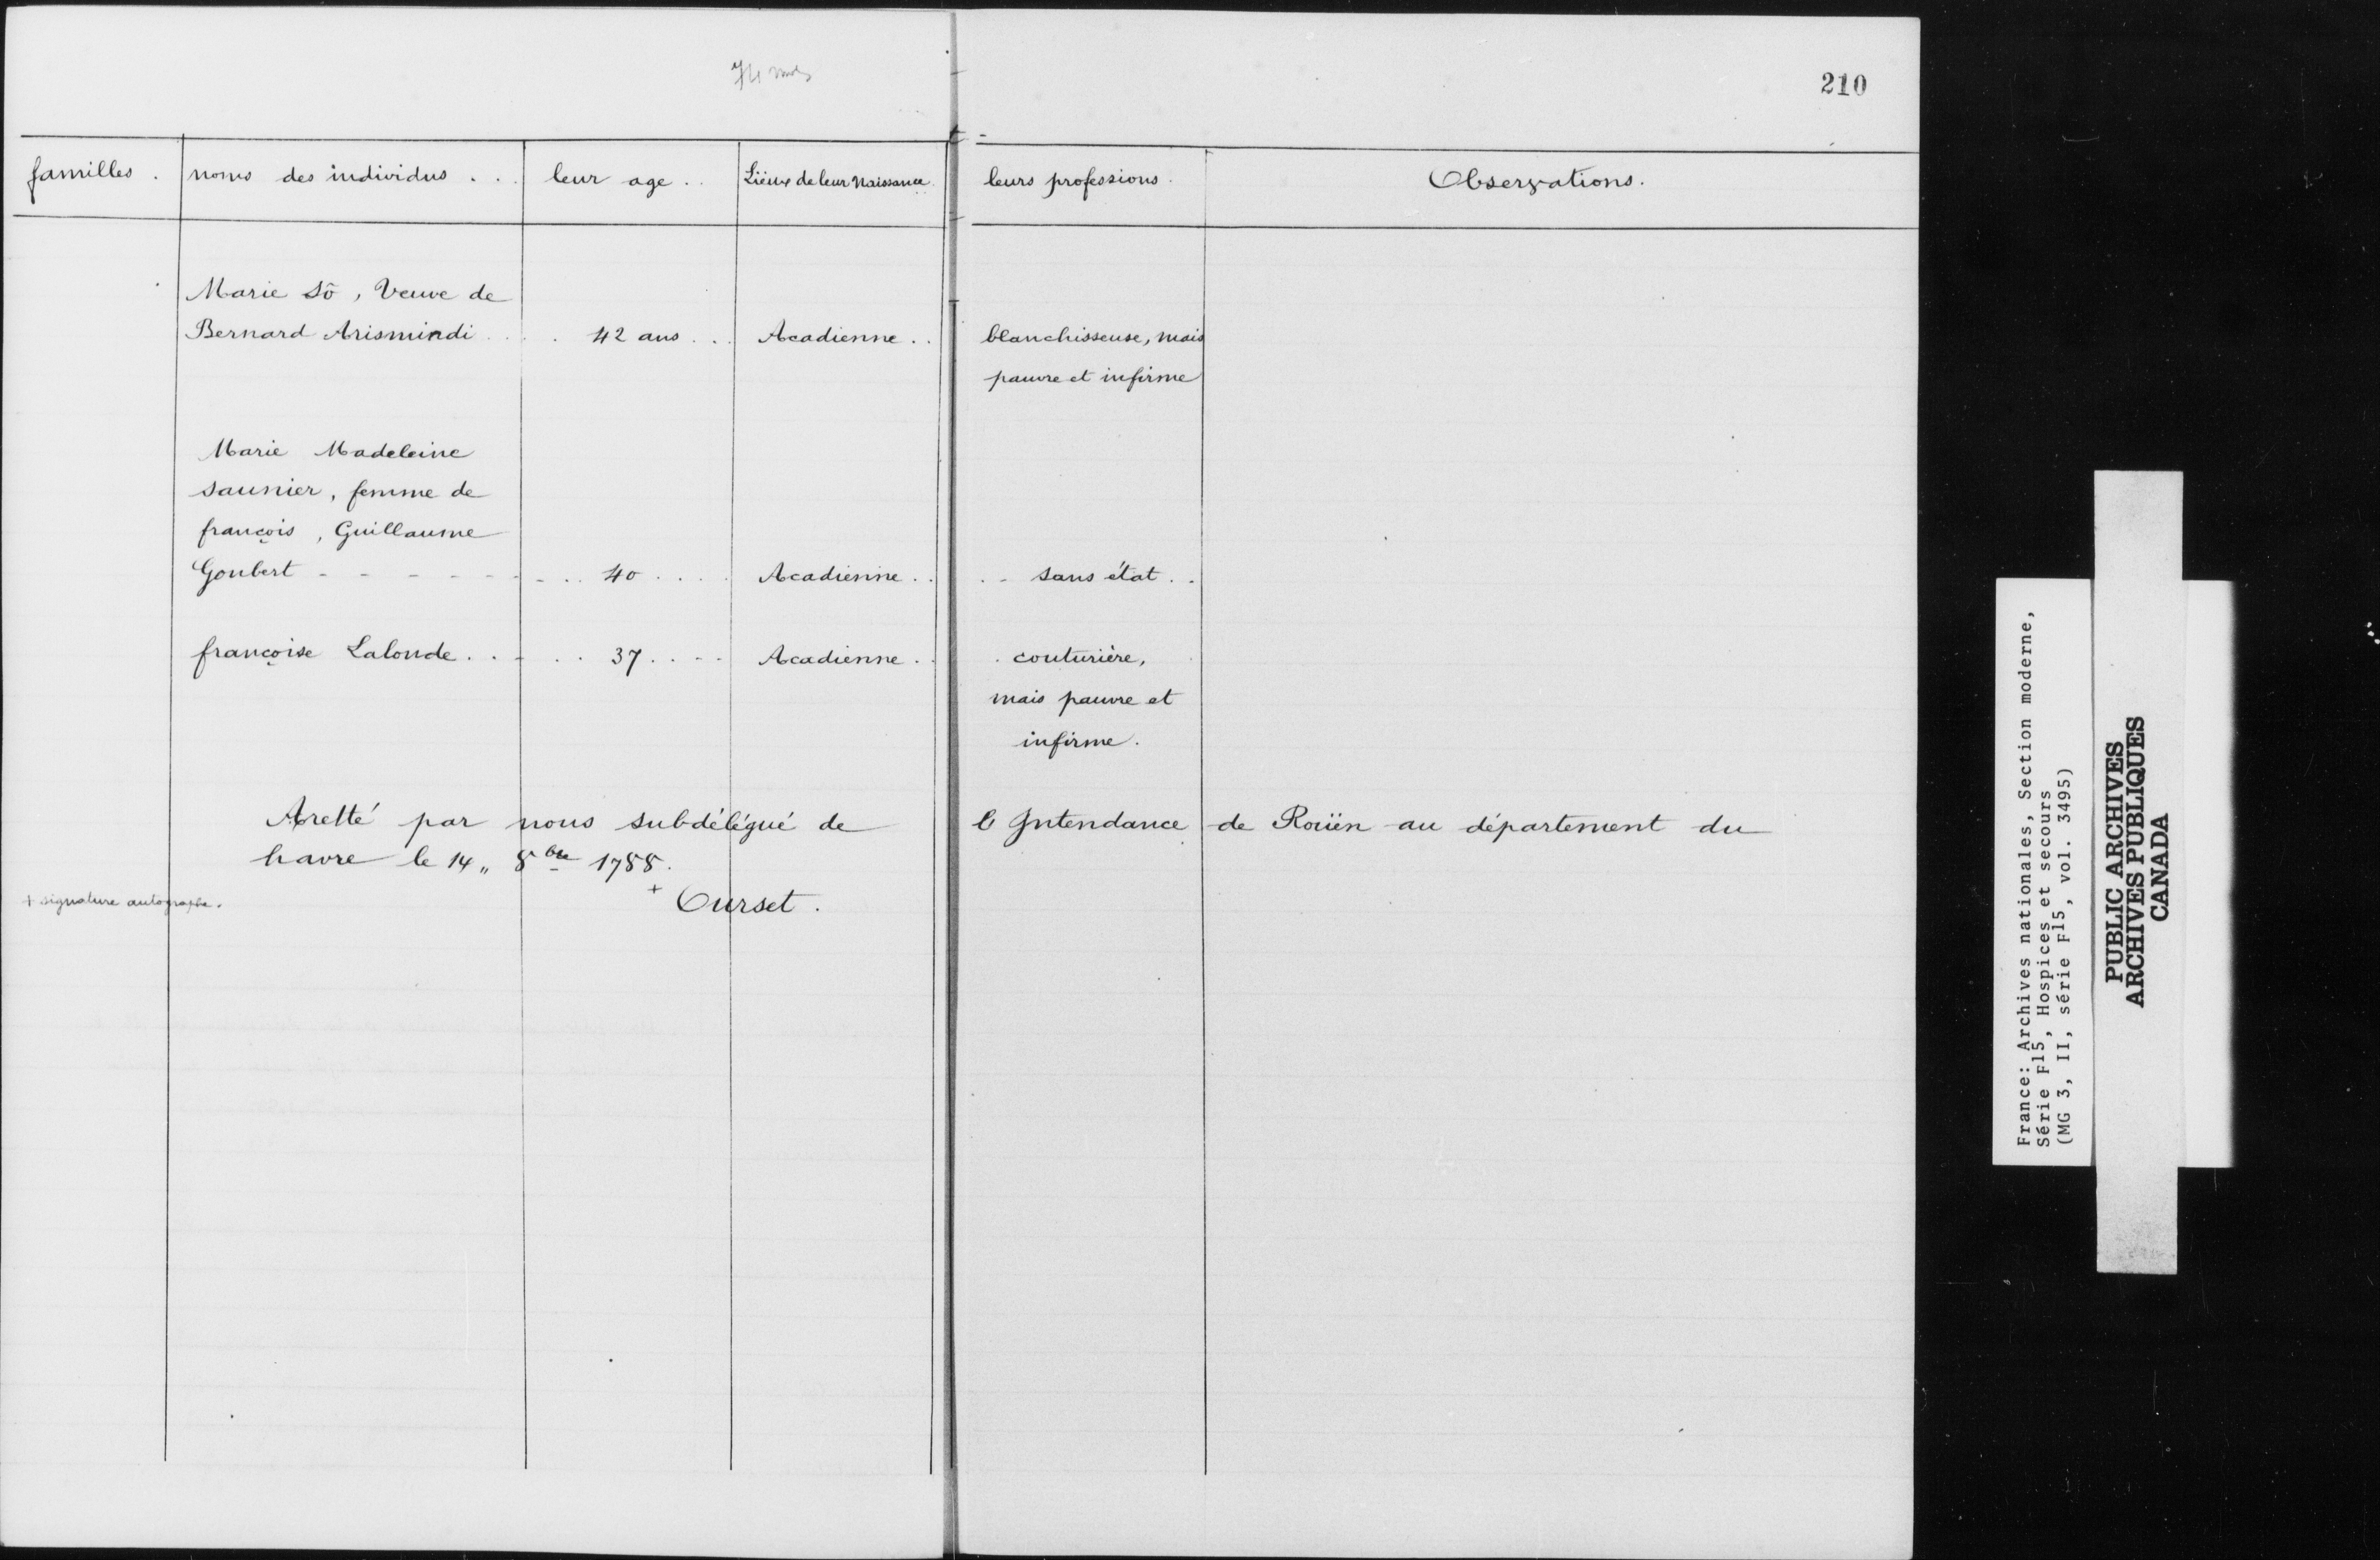 210
familles . noms des individus . . . leur age . . Liëux de leur Naissance. leurs professions. Observations.
Marie Sô, Veuve de
Bernard Arismindi . . . 42 ans . . . Acadienne . . blanchisseuse, mais
pauvre et infirme
Marie Madeleine
saunier, femme de
françois, Guillaume
Goubert - - - - - - - . . 40 . . . . Acadienne . . . - sans état . .
françoise Lalonde . . - . . 37 . . - - Acadienne . . . couturière,
mais pauvre et
infirme.
Aretté par nous subdélégué de l Intendance de Roüen au département du
havre le 14 „ 8bre 1788.
+ signature autographe. + Ourset.
France: Archives nationales, Section moderne,
Série F15, Hospices et secours
(MG 3, II, série F15, vol. 3495)
PUBLIC ARCHIVES
ARCHIVES PUBLIQUES
CANADA